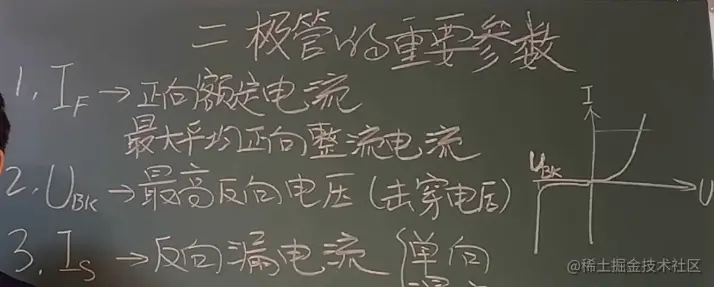 二极管的重要参数
1. I_F → 正向额定电流
最大平均正向整流电流
2. U_BK → 最高反向电压(击穿电压)
3. I_S → 反向漏电流(单向
I
U_BK
U
@稀土掘金技术社区